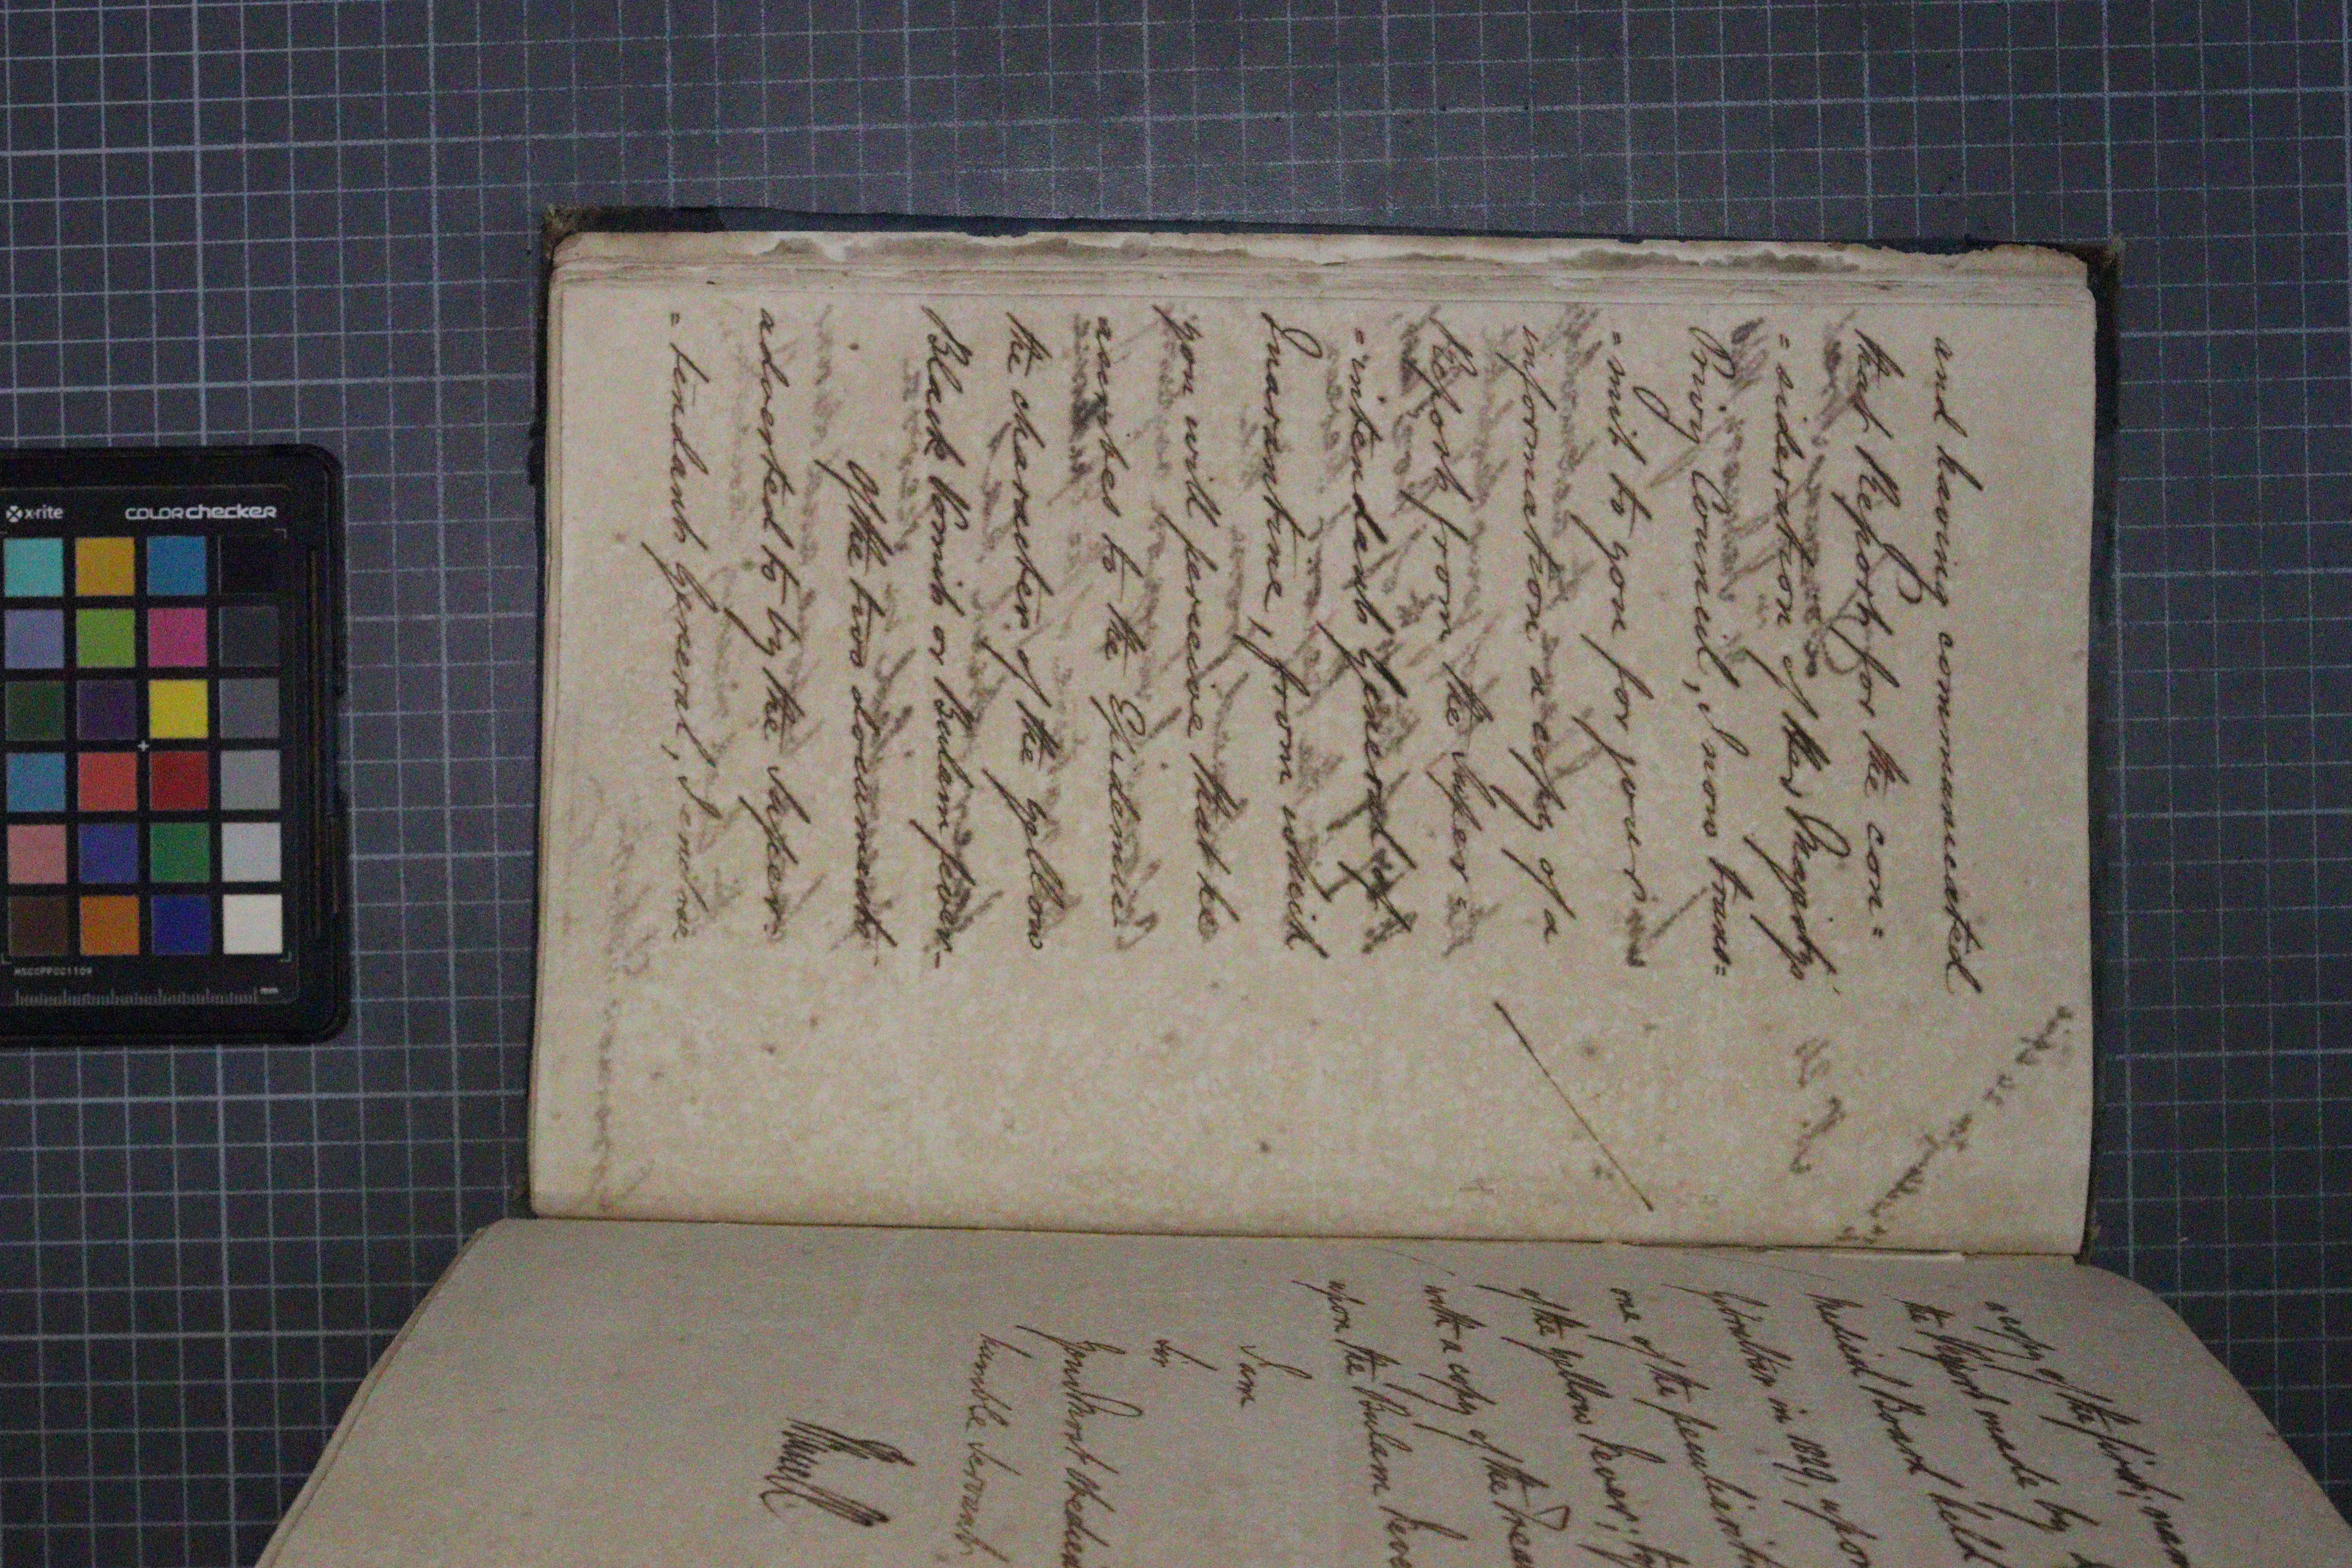 and having communicated
that Report for the con=
=sideration of His Majesty's
Privy Council, I now trans=
=mit to you for your
information a copy of a
Report from the Super=
=intendant General of
Quarantine, from which
you will perceive that he
ascribes to the Epidemic
the character of the yellow
Black Vomit or Bulam fever.
Of the two documents
adverted to by the Super
=tendant General, I enclose
a copy of the first,
the Report made by
Medical Board held
Gibraltar in 1829, upon
one of the peculiarities
of the yellow fever;
with a copy of the
upon the Bulam
I am
Sir
Your most obedient
humble Servant
x-rite
COLORchecker
MSCCPPCC1109